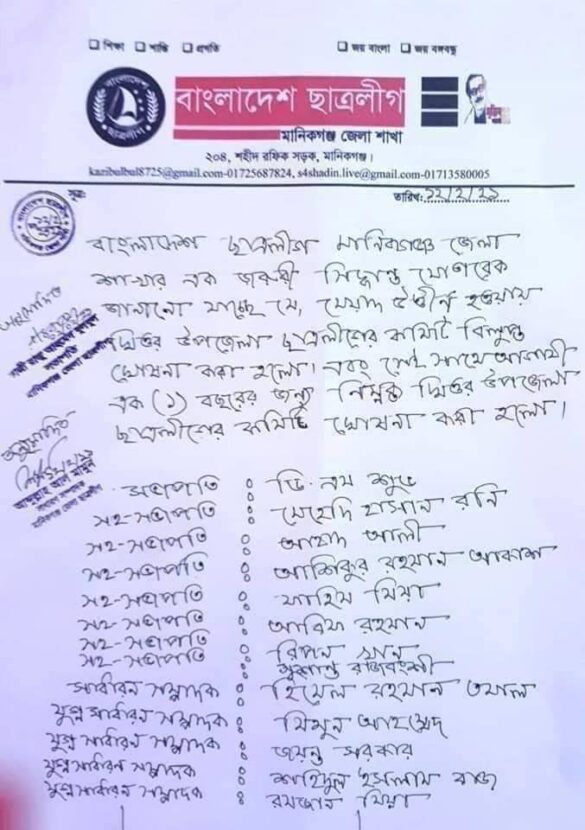 ☐ শিক্ষা ☐ শান্তি ☐ প্রগতি ☐ জয় বাংলা ☐ জয় বঙ্গবন্ধু
বাংলাদেশ ছাত্রলীগ
মানিকগঞ্জ জেলা শাখা
২০৪, শহীদ রফিক সড়ক, মানিকগঞ্জ।
kazibulbul8725@gmail.com-01725687824, s4shadin.live@gmail.com-01713580005
সূত্র: তারিখ: ১২/২/২১
বাংলাদেশ ছাত্রলীগ মানিকগঞ্জ জেলা
শাখার এক জরুরী সিদ্ধান্ত মোতাবেক
জানানো যাচ্ছে যে, মেয়াদ উত্তীর্ন হওয়ায়
ঘিওর উপজেলা ছাত্রলীগের কমিটি বিলুপ্ত
ঘোষনা করা হলো। এবং সেই সাথে আগামী
এক (১) বছরের জন্য নিম্নোক্ত ঘিওর উপজেলা
ছাত্রলীগের কমিটি ঘোষনা করা হলো।
অনুমোদিত
সভাপতি
মানিকগঞ্জ জেলা ছাত্রলীগ
অনুমোদিত
সাধারণ সম্পাদক
মানিকগঞ্জ জেলা ছাত্রলীগ
সভাপতি : ভি.এম শুভ
সহ-সভাপতি : মেহেদি হাসান রনি
সহ-সভাপতি : আহাদ আলী
সহ-সভাপতি : আশিকুর রহমান আকাশ
সহ-সভাপতি : ফাহিম মিয়া
সহ-সভাপতি : আরিফ রহমান
সহ-সভাপতি : রিপন খান
সহ-সভাপতি : সুশান্ত রাজবংশী
সাধারন সম্পাদক : হিমেল রহমান তমাল
যুগ্ন সাধারন সম্পাদক : মিথুন আহম্মেদ
যুগ্ন সাধারন সম্পাদক : জয়ন্ত সরকার
যুগ্ন সাধারন সম্পাদক : শহিদুল ইসলাম রাজ
যুগ্ন সাধারন সম্পাদক : রমজান মিয়া